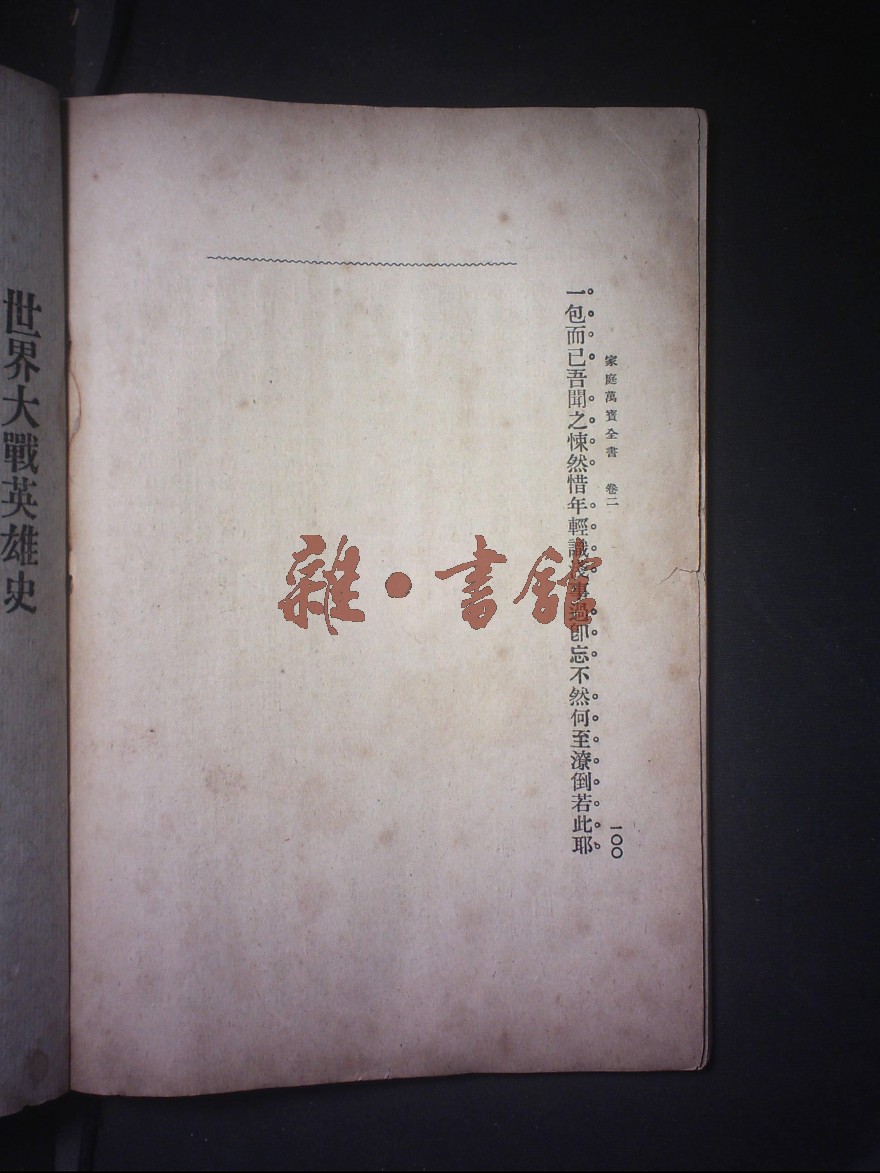 家庭萬寶全書　卷二
一〇〇
一包而已吾聞之悚然惜年輕識淺事過卽忘不然何至潦倒若此耶
雜·書館
世界大戰英雄史